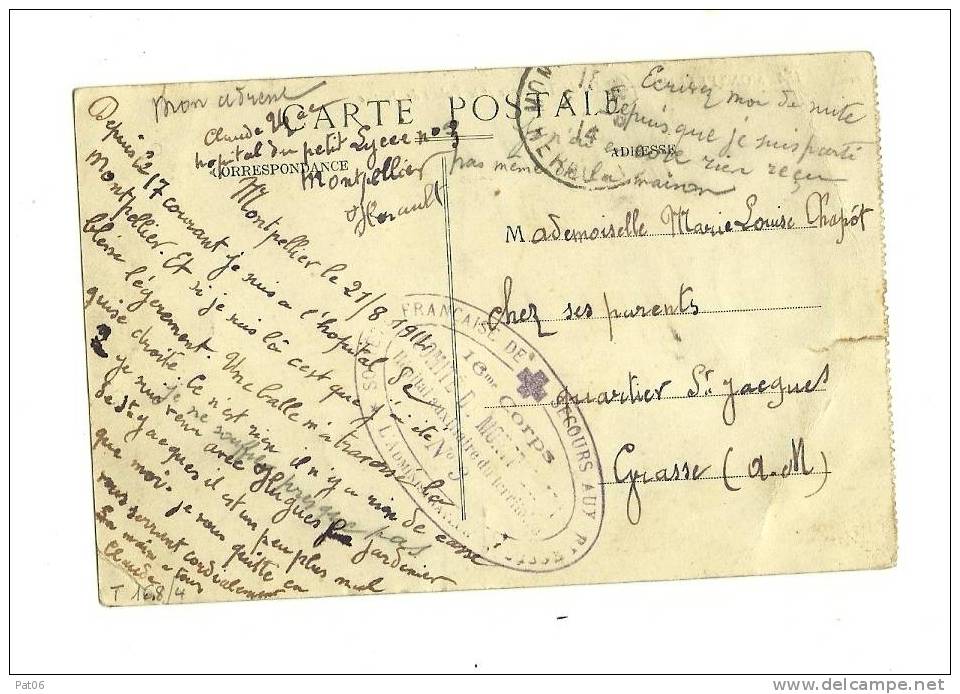 Mon adresse
Claude
hopital du petit Lycee no 3
Montpellier
Herault
CARTE POSTALE
CORRESPONDANCE
ADRESSE
Ecrivez moi de suite
depuis que je suis parti
j'ai encore rien reçu
pas même de la maison
Montpellier le 21/8 1914
Depuis le 17 courant je suis a l'hopital de
Montpellier. Et si je suis là c'est que j'ai été
blessé légèrement. Une balle m'a traversé la
cuisse droite ce n'est rien il n'y a rien de cassé
je ne souffre presque pas
je suis venu avec Hugues le jardinier
de St Jacques il est un peu plus mal
que moi. Je vous quitte en
vous serrant cordialement
la main a tous
Claude
Mademoiselle Marie Louise Chapôt
chez ses parents
quartier St. Jacques
Grasse (A.M)
FRANÇAISE DE SECOURS AUX BLESSÉS
16me Corps
COMITÉ D. MONT
du territoire
No 3
L'ADMINISTRATEUR
T 168/4
Pat06
www.delcampe.net